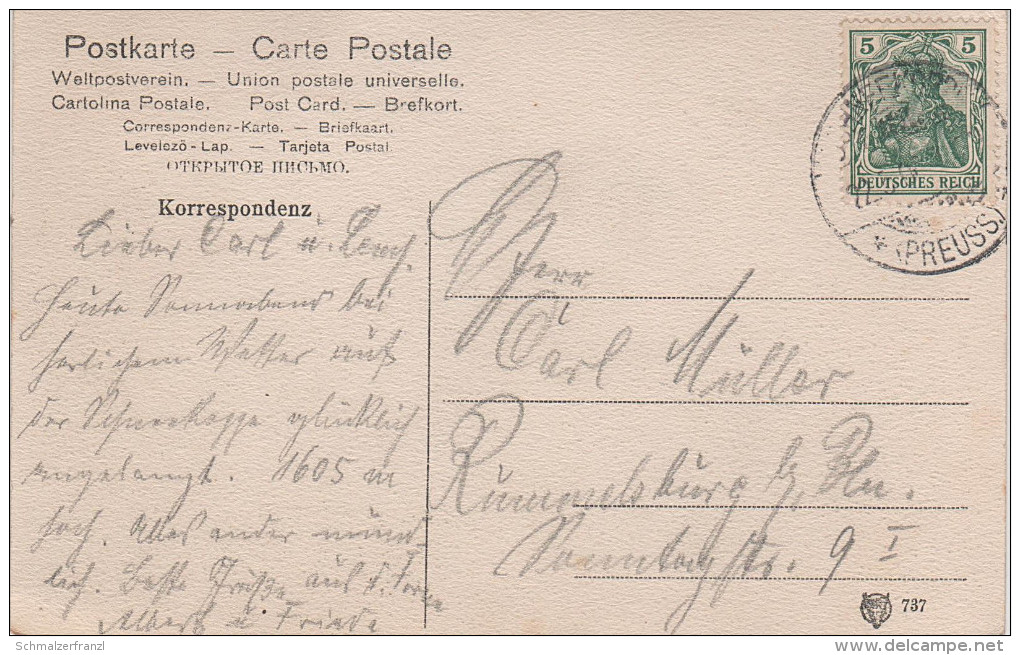 Postkarte — Carte Postale
Weltpostverein. — Union postale universelle.
Cartolina Postale. Post Card. — Brefkort.
Correspondenz-Karte. — Briefkaart.
Levelező-Lap. — Tarjeta Postal.
ОТКРЫТОЕ ПИСЬМО.
Korrespondenz
5 5
DEUTSCHES REICH
* (PREUSS.)
Lieber Carl u.
Heute Sonnabend bei
herlichem Wetter auf
der Schneekoppe glücklich
angelangt. 1605 m
hoch. Alles ander münd-
lich. Beste Grüße aus d.
Albert u Friede
Herr
Carl Müller
Rummelsburg b/ Bln.
Sonntagstr. 9 I
737
Schmalzerfranzl
delcampe.net